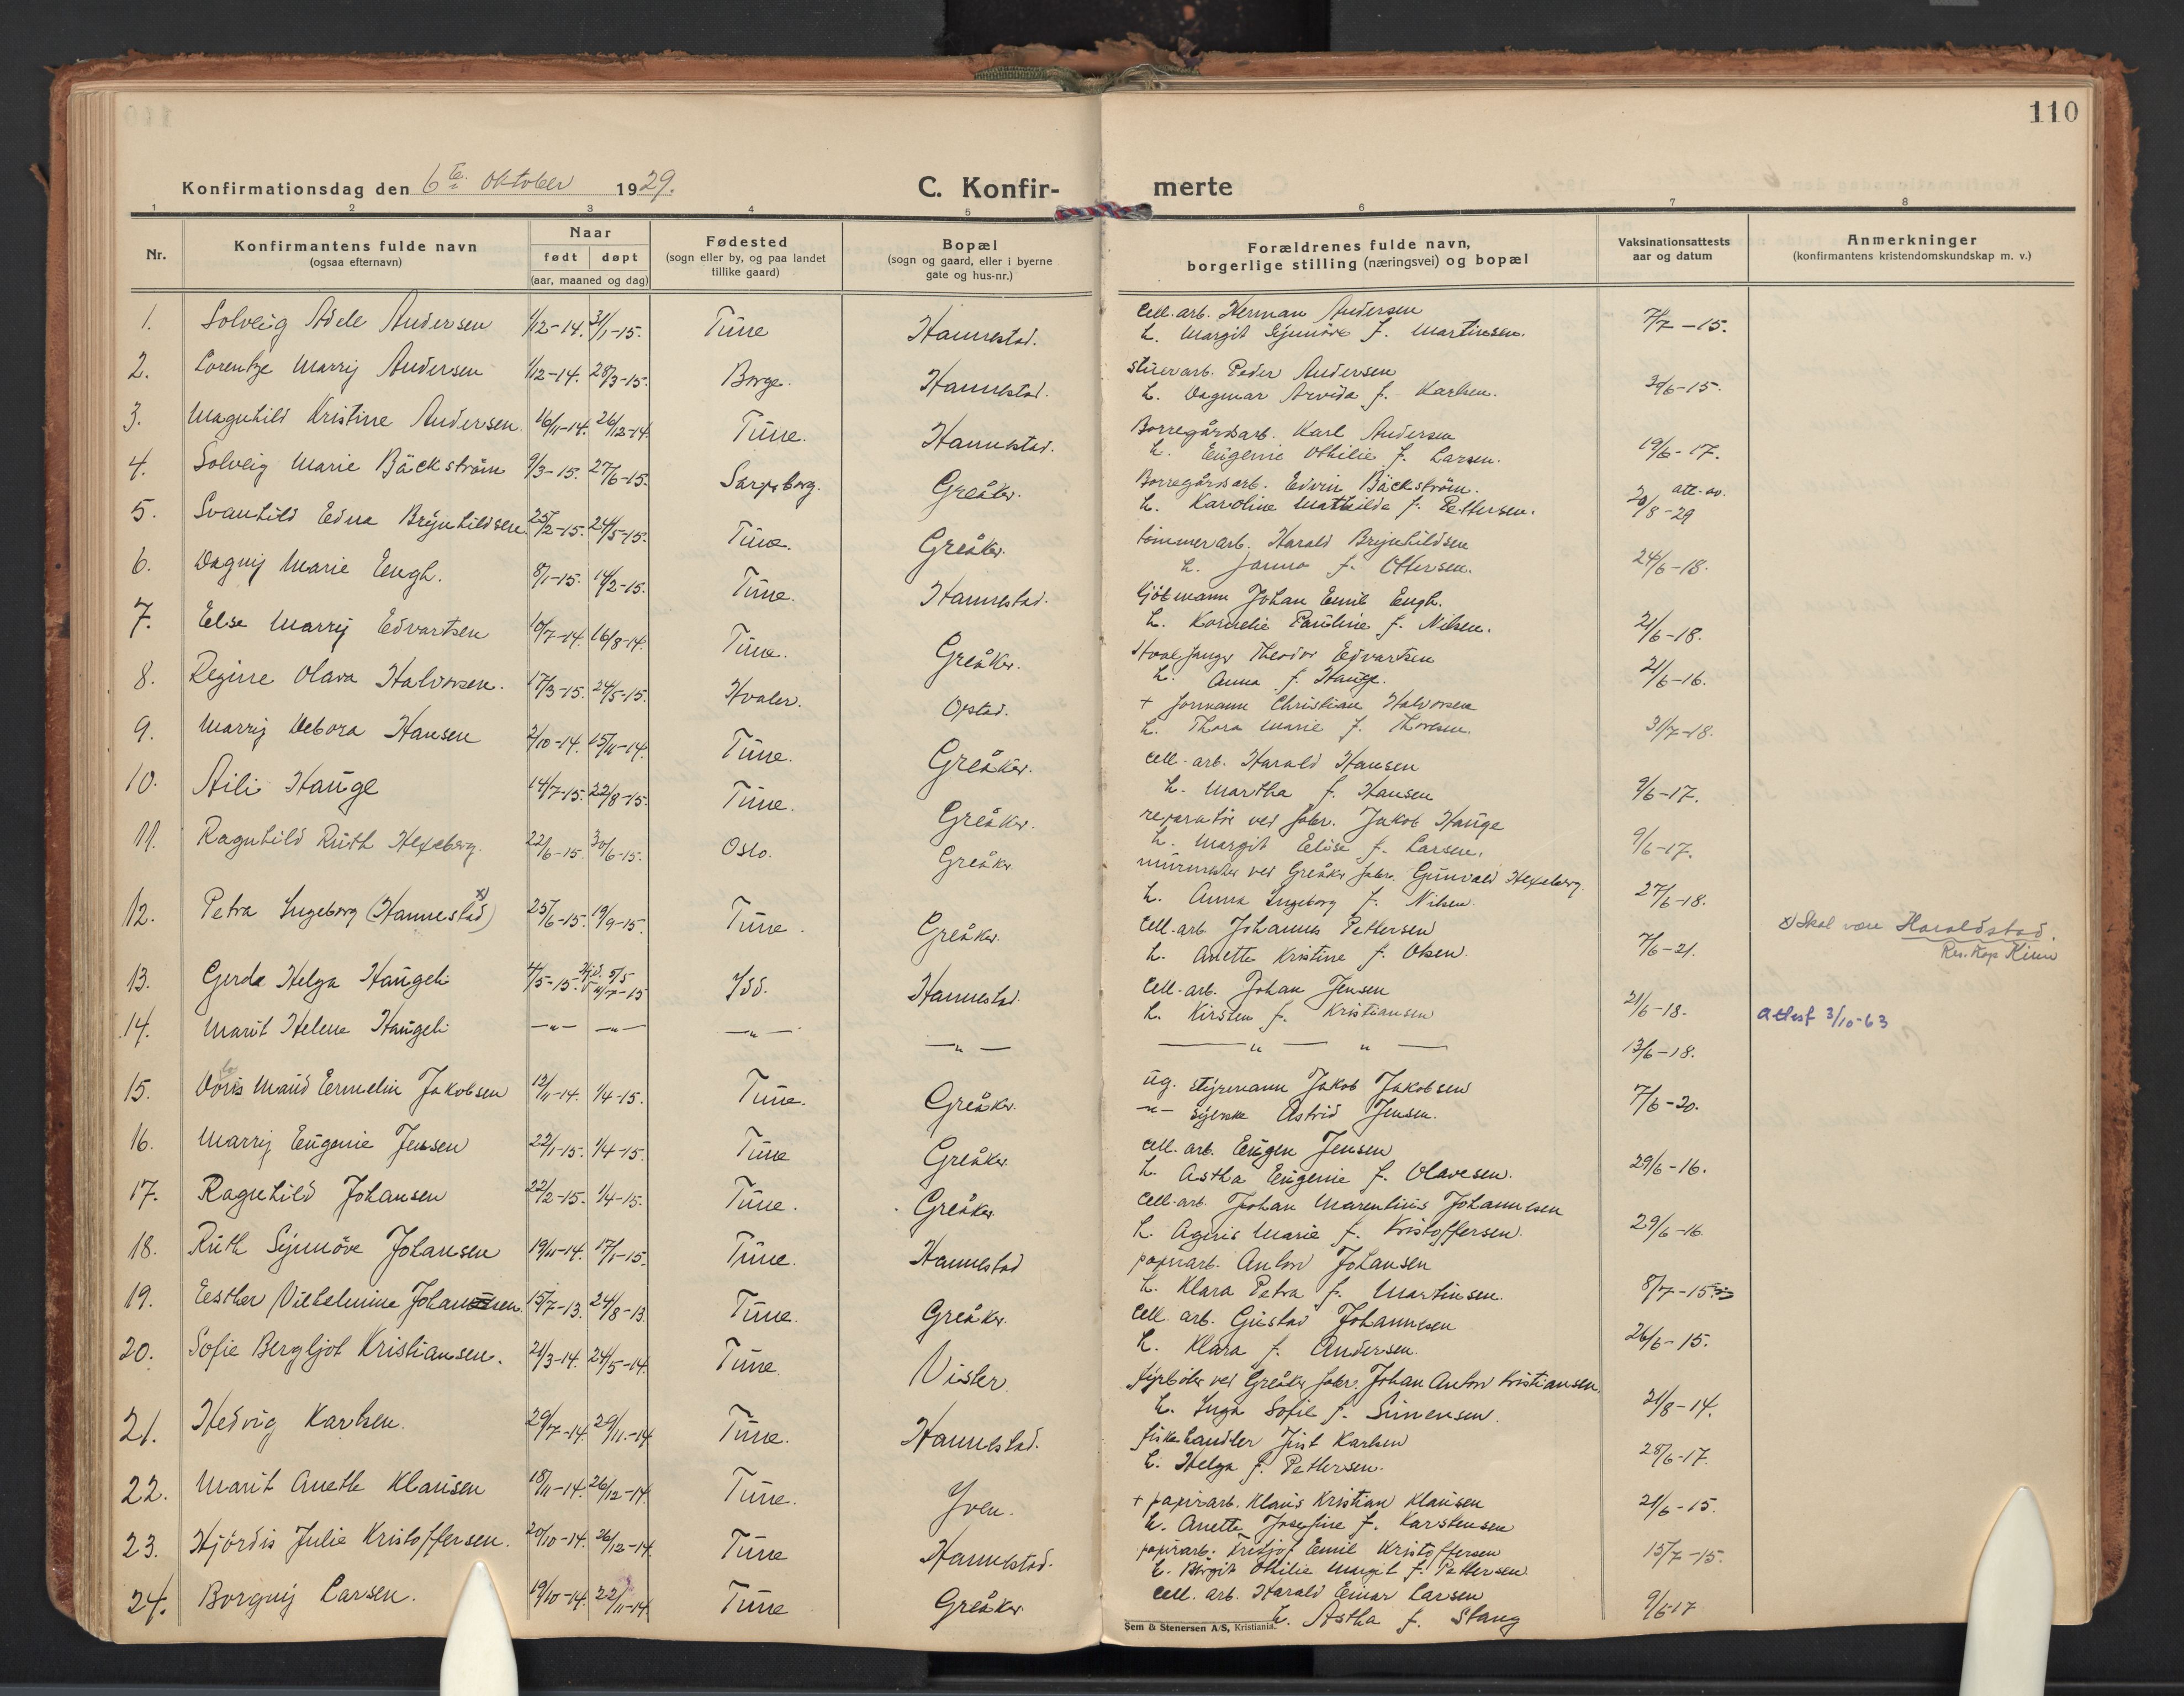 110
Konfirmationsdag den 6te oktober 1929.
C. Konfir- merte
1 2 3 4 5 6 7 8
Nr.
Konfirmantens fulde navn
(ogsaa efternavn)
Naar
født døpt
(aar, maaned og dag)
Fødested
(sogn eller by, og paa landet
tillike gaard)
Bopæl
(sogn og gaard, eller i byerne
gate og hus-nr.)
Forældrenes fulde navn,
borgerlige stilling (næringsvei) og bopæl
Vaksinationsattests
aar og datum
Anmerkninger
(konfirmantens kristendomskundskap m. v.)
1. Solveig Adele Andersen 1/12-14. 31/1-15. Tune Hannestad. Cell. arb. Herman Andersen 7/7-15.
h. Margit Synnöve f. Martinsen.
2. Lorentze Marry Andersen 1/12-14. 28/3-15. Borge. Hannestad. stuerarb. Peder Andersen 30/6-15.
h. Dagmar Arvida f. Karlsen.
3. Magnhild Kristine Andersen. 16/11-14. 26/12-14. Tune. Hannestad. Borregårdsarb. Karl Andersen 19/6-17.
h. Eugenie Othilie f. Larsen.
4. Solveig Marie Bäckström 9/3-15. 27/6-15. Sarpsborg. Greåker. Borregårdsarb. Edvin Bäckström. att. av. 20/8-29
h. Karoline Mathilde f. Pettersen.
5. Svanhild Edna Brynhildsen 25/2-15. 24/5-15. Tune. Greåker. tömmerarb. Harald Brynhildsen 24/6-18.
h. Janna f. Ottersen.
6. Dagny Marie Engh. 8/1-15. 14/2-15. Tune. Hannestad. kjöbmann Johan Emil Engh. 21/6-18.
h. Kornelie Pauline f. Nilsen.
7. Else Marry Edvartsen 10/7-14. 16/8-14. Tune. Greåker. Hvalfanger Theodor Edvartsen 21/6-16.
h. Anna f. Hauge.
8. Regine Olava Halvorsen. 17/3-15. 24/5-15. Hvaler. Opstad. + formann Christian Halvorsen 31/7-18.
h. Thora Marie f. Thoresen.
9. Marry Debora Hansen 2/10-14. 15/11-14. Tune. Greåker. cell. arb. Harald Hansen 9/6-17.
h. Martha f. Hansen
10. Aili Hauge 14/7-15. 22/8-15. Tune. Greåker. reparatör ved fabr. Jakob Hauge 9/6-17.
h. Margit Elise f. Larsen.
11. Ragnhild Ruth Hexeberg. 22/6-15. 30/6-15. Oslo. Greåker murmester ved Greåker fabr. Gunvald Hexeberg. 27/6-18.
h. Anna Ingeborg f. Nilsen.
12. Petra Ingeborg (Hannestad) x) 25/6-15. 19/9-15. Tune. Greåker. Cell. arb. Johannes Pettersen 7/6-21. x) Skal være Haraldstad.
h. Anette Kristine f. Olsen. Res. kap. Kinn
13. Gerda Helga Haugeli 4/5-15. Hjd. 5/5 11/7-15 Idd. Hannestad. Cell. arb. Johan Jensen 21/6-18. Attest 3/10-63
h. Kirsten f. Kristiansen
14. Marit Helene Haugeli —"— —"— —"— —"— —"— " — 13/6-18.
15. Doris Maud Ermelin Jakobsen 12/11-14. 1/4-15. Tune. Greåker. ug. styrmann Jakob Jakobsen 7/6-20.
—"— syerske Astrid Jensen.
16. Marry Eugenie Jensen 22/1-15. 1/4-15. Tune Greåker. cell. arb. Eugen Jensen 29/6-16.
h. Astha Eugenie f. Olavesen.
17. Ragnhild Johansen 22/2-15. 1/4-15. Tune. Greåker. Cell. arb. Johan Marentinis Johannesen 29/6-16.
h. Agnis Marie f. Kristoffersen.
18. Ruth Synnöve Johansen 19/11-14. 17/1-15. Tune. Hannestad papirarb. Anton Johansen 8/7-15.
h. Klara Petra f. Martinsen.
19. Esther Vilhelmine Johansen 15/7-13. 24/8-13. Tune. Greåker. Cell. arb. Gustav Johannesen 26/6-15.
h. Klara f. Andersen.
20. Sofie Bergljot Kristiansen. 21/3-14. 24/5-14. Tune. Vister. fyrböter ved Greåker fabr. Johan Anton Kristiansen. 21/8-14.
h. Inga Sofie f. Simensen.
21. Hedvig Karlsen. 29/7-14. 29/11-14. Tune. Hannestad. fiskehandler Just Karlsen 28/6-17.
h. Helga f. Pettersen.
22. Marit Anette Klausen 18/11-14. 26/12-14. Tune. Yven. + papirarb. Klaus Kristian Klausen 21/6-15.
h. Anette Josefine f. Karstensen
23. Hjördis Julie Kristoffersen. 20/10-14. 26/12-14. Tune Hannestad. papirarb. Fritjof Emil Kristoffersen 15/7-15.
h. Birgit Othilie Margit f. Pettersen.
24. Borgny Larsen. 19/10-14. 22/11-14. Tune Greåker. Cell. arb. Harald Einar Larsen 9/6-17
h. Astha f. Stang
Sem & Stenersen A/S, Kristiania.